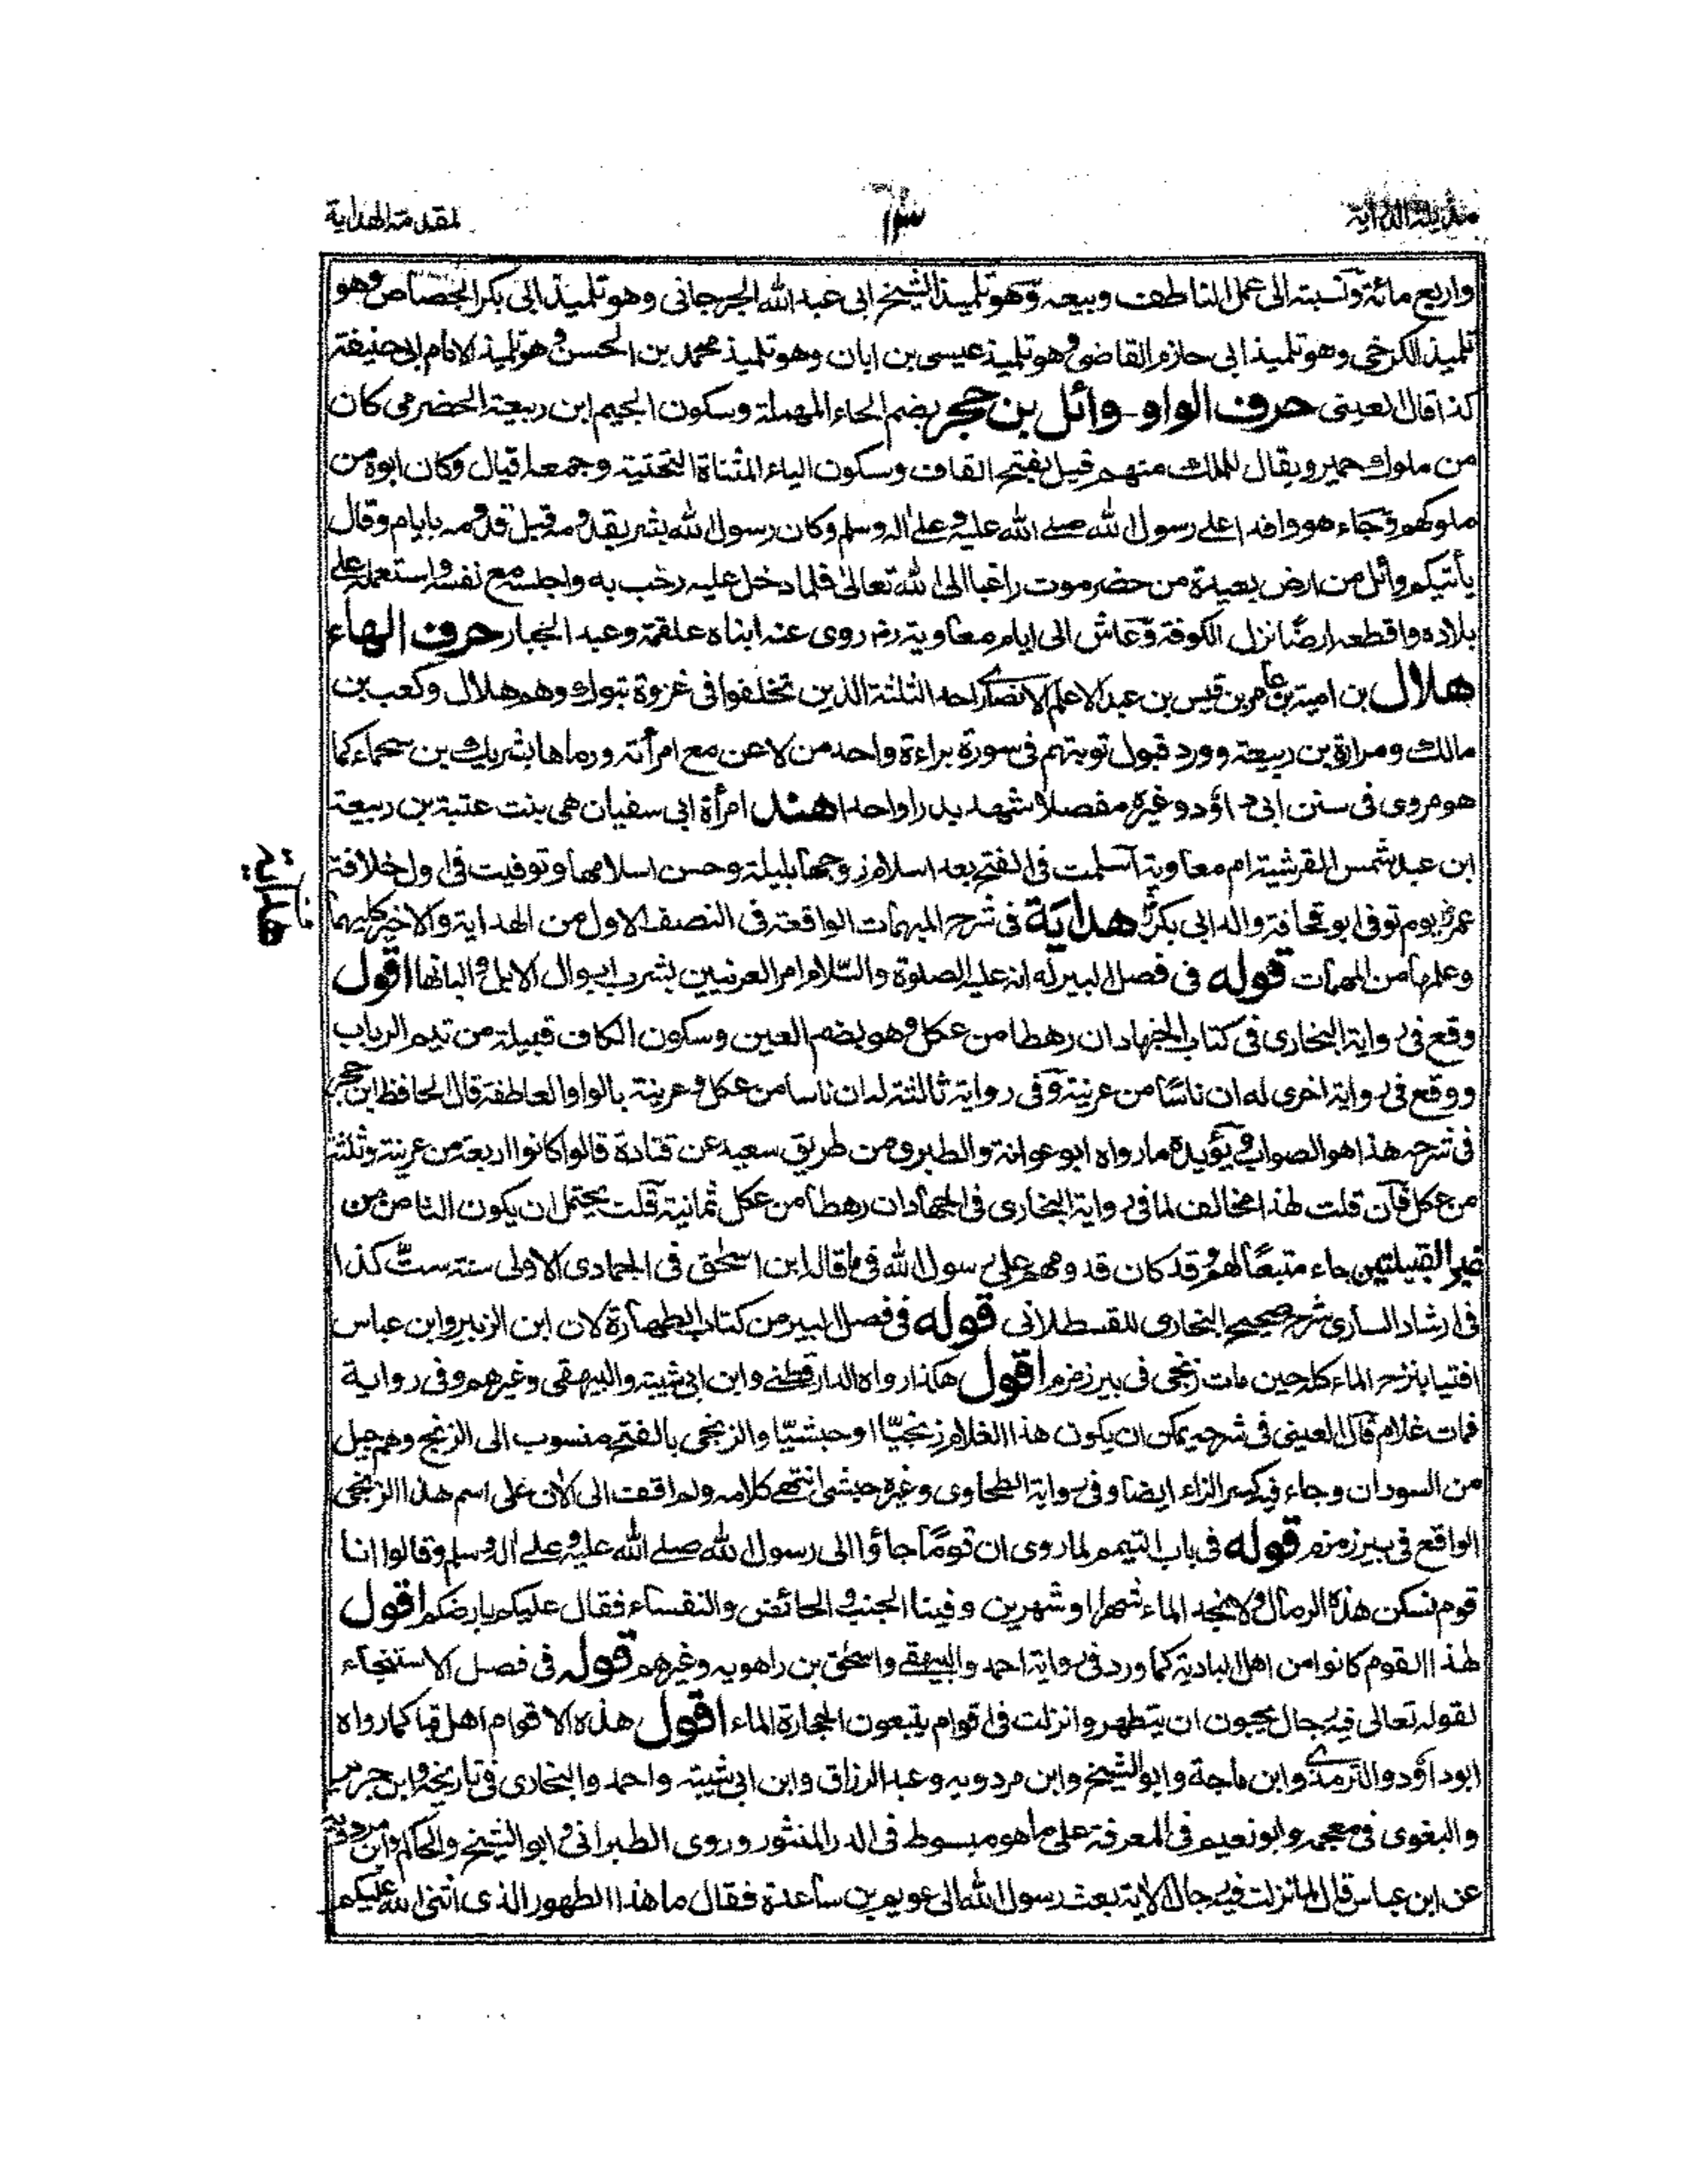 مذيلة الدراية ١٣ لمقدمة الهداية
واربع مائة ونسبته الى عمل الناطف وبيعه وهو تلميذ الشيخ ابى عبد الله الجرجانى وهو تلميذ ابى بكر الجصاص وهو
تلميذ الكرخى وهو تلميذ ابى حازم القاضى وهو تلميذ عيسى بن ابان وهو تلميذ محمد بن الحسن وهو تلميذ الامام ابى حنيفة
كذا قال العينى حرف الواو - وائل بن حجر بضم الحاء المهملة وسكون الجيم ابن ربيعة الحضرمى كان
من ملوك حمير ويقال للملك منهم قيل بفتح القاف وسكون الياء المثناة التحتية وجمعه اقيال وكان ابوه من
ملوكهم وجاء هو وافدا على رسول الله صلى الله عليه وعلى اله وسلم وكان رسول الله بشر بقدومه قبل قدومه بايام وقال
يأتيكم وائل من ارض بعيدة من حضرموت راغبا الى الله تعالى فلما دخل عليه رحب به واجلسه مع نفسه واستعمله على
بلاده واقطعه ارضا نزل الكوفة وعاش الى ايام معاوية رض روى عنه ابناه علقمة وعبد الجبار حرف الهاء
هلال بن امية بن عامر بن قيس بن عبد الاعلم الانصارى احد الثلثة الذين تخلفوا فى غزوة تبوك وهم هلال وكعب بن
مالك ومرارة بن ربيعة وورد قبول توبتهم فى سورة براءة واحد من لاعن مع امرأته ورماها بشريك بن سحماء كما
هو مروى فى سنن ابى داؤد وغيره مفصلا شهد بدرا واحدا هند امرأة ابى سفيان هى بنت عتبة بن ربيعة
ابن عبد شمس القرشية ام معاوية اسلمت فى الفتح بعد اسلام زوجها بليلة وحسن اسلامها وتوفيت فى اول خلافة
عمر يوم توفى ابو قحافة والد ابى بكر هداية فى شرح المبهمات الواقعة فى النصف الاول من الهداية والاخير كليهما
وعلمها من المهمات قوله فى فصل البير له انه عليه الصلوة والسلام امر العرنيين بشرب ابوال الابل والبانها اقول
وقع فى رواية البخارى فى كتاب الجهاد ان رهطا من عكل وهو بضم العين وسكون الكاف قبيلة من تيم الرباب
ووقع فى رواية اخرى له ان ناسا من عرينة وفى رواية ثالثة له ان ناسا من عكل وعرينة بالواو العاطفة قال الحافظ ابن حجر
فى شرحه هذا هو الصواب ويؤيده ما رواه ابو عوانة والطبرى من طريق سعيد عن قتادة قالوا كانوا اربعة من عرينة وثلثة
من عكل فان قلت هذا مخالف لما فى رواية البخارى فى الجهاد ان رهطا من عكل ثمانية قلت يحتمل ان يكون الثامن من
غير القبيلتين جاء متبعا لهم وقد كان قدومهم على رسول الله فيما قال ابن اسحق فى الجمادى الاولى سنة ست كذا
فى ارشاد السارى شرح صحيح البخارى للقسطلانى قوله فى فصل البير من كتاب الطهارة لان ابن الزبير وابن عباس
افتيا بنزح الماء كله حين مات زنجى فى بير زمزم اقول هكذا رواه الدارقطنى وابن ابى شيبة والبيهقى وغيرهم وفى رواية
فمات غلام قال العينى فى شرحه يمكن ان يكون هذا الغلام زنجيا او حبشيا والزنجى بالفتح منسوب الى الزنج وهم جيل
من السودان وجاء فيه كسر الزاء ايضا وفى رواية الطحاوى وغيره حبشى انتهى كلامه ولم اقف الى الان على اسم هذا الزنجى
الواقع فى بير زمزم قوله فى باب التيمم لما روى ان قوما جاؤا الى رسول الله صلى الله عليه وعلى اله وسلم وقالوا انا
قوم نسكن هذه الرمال ولا نجد الماء شهرا او شهرين وفينا الجنب والحائض والنفساء فقال عليكم بارضكم اقول
هذا القوم كانوا من اهل البادية كما ورد فى رواية احمد والبيهقى واسحق بن راهويه وغيرهم قوله فى فصل الاستنجاء
لقوله تعالى فيه رجال يحبون ان يتطهروا نزلت فى اقوام يتبعون الحجارة الماء اقول هذه الاقوام اهل قبا كما رواه
ابو داؤد والترمذى وابن ماجة وابو الشيخ وابن مردويه وعبد الرزاق وابن ابى شيبة واحمد والبخارى فى تاريخه وابن جرير
والبغوى فى معجمه وابو نعيم فى المعرفة على ما هو مبسوط فى الدر المنثور وروى الطبرانى وابو الشيخ والحاكم وابن مردويه
عن ابن عباس قال لما نزلت فيه رجال الاية بعث رسول الله الى عويم بن ساعدة فقال ما هذا الطهور الذى اثنى الله عليكم